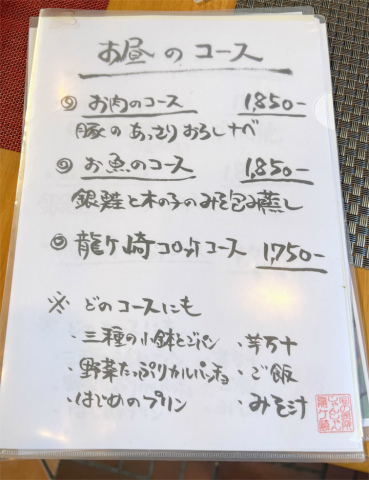 お昼のコース
◎ お肉のコース 1,850-
豚のあっさりおろしナベ
◎ お魚のコース 1,850-
銀鮭と木の子のみそ包み蒸し
◎ 龍ケ崎コロッケコース 1,750-
※ どのコースにも
・三種の小鉢とジパン
・芋万十
・野菜たっぷりカルパッチョ
・ご飯
・はじめのプリン
・みそ汁